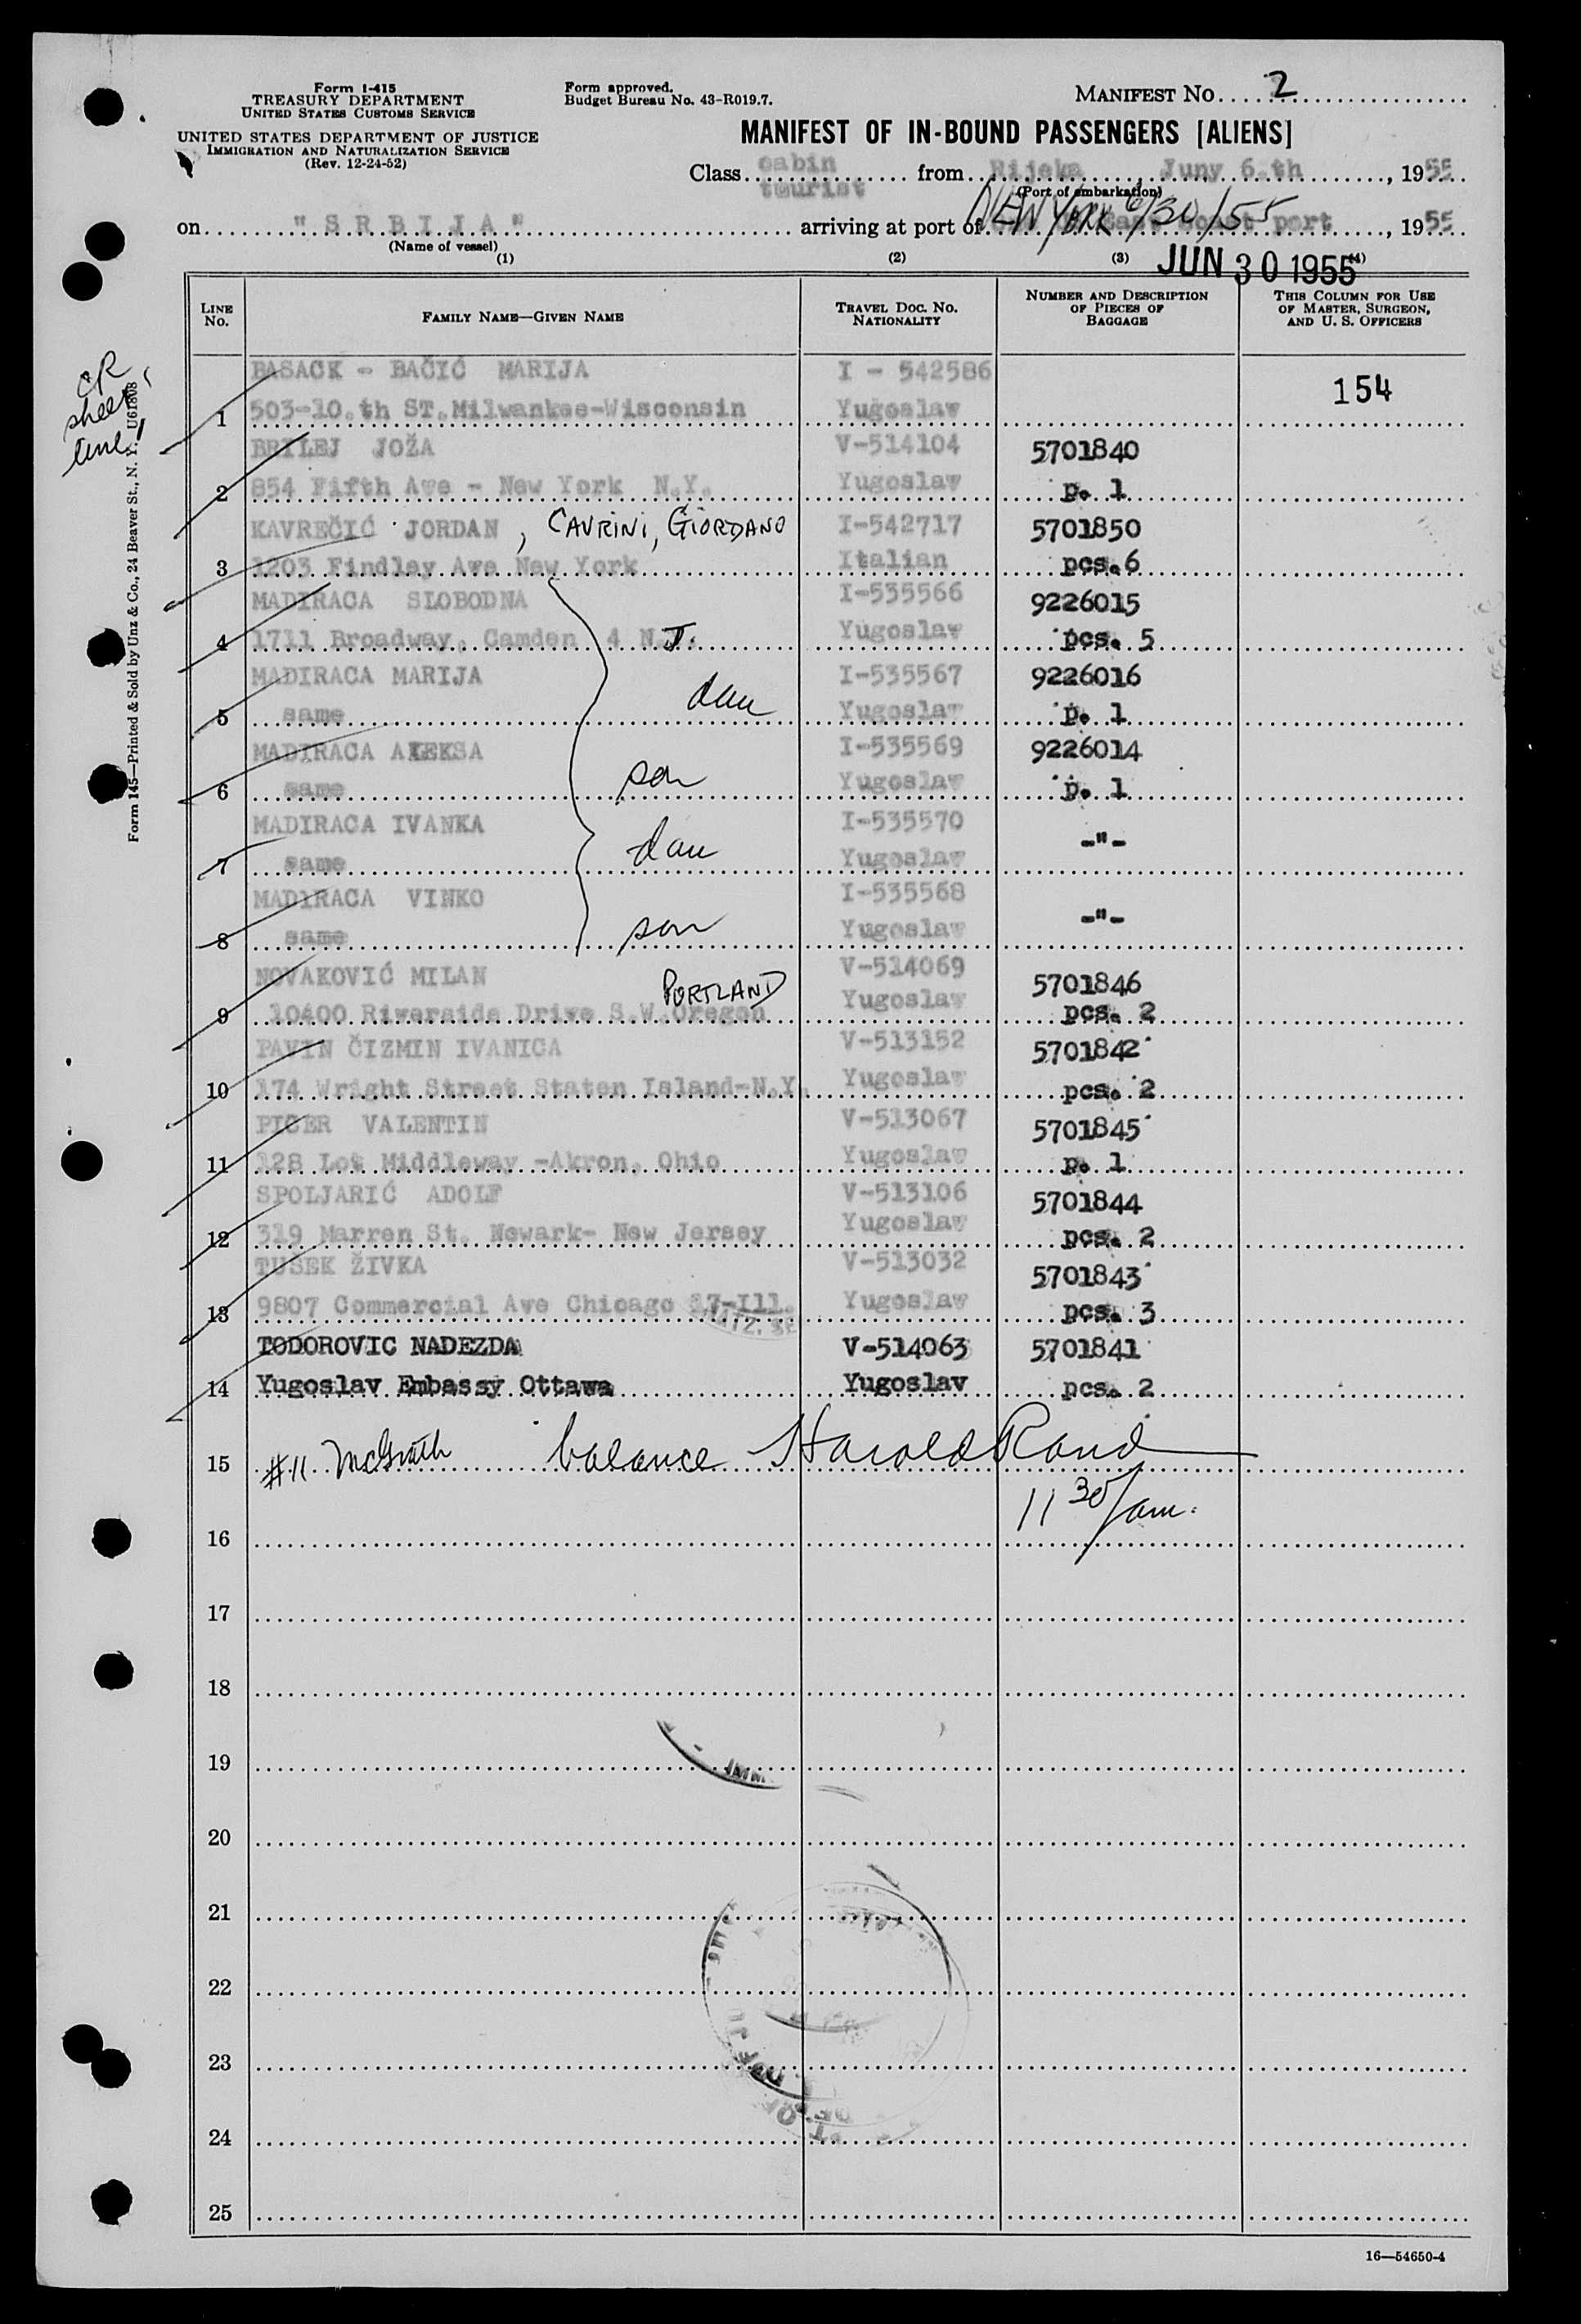 Form I-415
TREASURY DEPARTMENT
UNITED STATES CUSTOMS SERVICE
UNITED STATES DEPARTMENT OF JUSTICE
IMMIGRATION AND NATURALIZATION SERVICE
(Rev. 12-24-52)
Form approved.
Budget Bureau No. 43-R019.7.
MANIFEST NO. 2
MANIFEST OF IN-BOUND PASSENGERS [ALIENS]
Class cabin tourist from Rijeka, Juny 6.th, 1955
(Port of embarkation)
on "SRBIJA" arriving at port of NEW YORK 6/30/55 East coast port, 1955
(Name of vessel)
JUN 30 1955
(1) (2) (3) (4)
LINE NO. FAMILY NAME—GIVEN NAME TRAVEL DOC. NO. NATIONALITY NUMBER AND DESCRIPTION OF PIECES OF BAGGAGE THIS COLUMN FOR USE OF MASTER, SURGEON, AND U. S. OFFICERS
CR
sheet,
line 1
Form 145—Printed & Sold by Unz & Co., 24 Beaver St., N. Y. U61808
BASACK - BAČIĆ MARIJA I - 542586 154
1 503-10.th ST.Milwankee-Wisconsin Yugoslav
BRILEJ JOŽA V-514104 5701840
2 854 Fifth Ave - New York N.Y. Yugoslav p. 1
KAVREČIĆ JORDAN, CAVRINI, GIORDANO I-542717 5701850
3 1203 Findley Ave New York Italian pcs.6
MADIRACA SLOBODNA I-535566 9226015
4 1711 Broadway, Camden 4 N.J. Yugoslav pcs. 5
MADIRACA MARIJA I-535567 9226016
5 same dau Yugoslav p. 1
MADIRACA ALEKSA I-535569 9226014
6 same son Yugoslav p. 1
MADIRACA IVANKA I-535570
7 same dau Yugoslav -"-
MADIRACA VINKO I-535568
8 same son Yugoslav -"-
NOVAKOVIĆ MILAN PORTLAND V-514069 5701846
9 10400 Riverside Drive S.W.Oregon Yugoslav pcs. 2
PAVIN ČIZMIN IVANICA V-513152 5701842
10 174 Wright Street Staten Island-N.Y. Yugoslav pcs. 2
PIČER VALENTIN V-513067 5701845
11 128 Lot Middleway -Akron, Ohio Yugoslav p. 1
SPOLJARIĆ ADOLF V-513106 5701844
12 319 Marren St. Newark- New Jersey Yugoslav pcs. 2
TUŠEK ŽIVKA V-513032 5701843
13 9807 Commercial Ave Chicago 17-Ill. Yugoslav pcs. 3
TODOROVIC NADEZDA V-514063 5701841
14 Yugoslav Embassy Ottawa Yugoslav pcs. 2
15 #11 McGrath balance Harold Rand
16 11 30/am.
17
18
19
20
21
22
23
24
25
16—54650-4